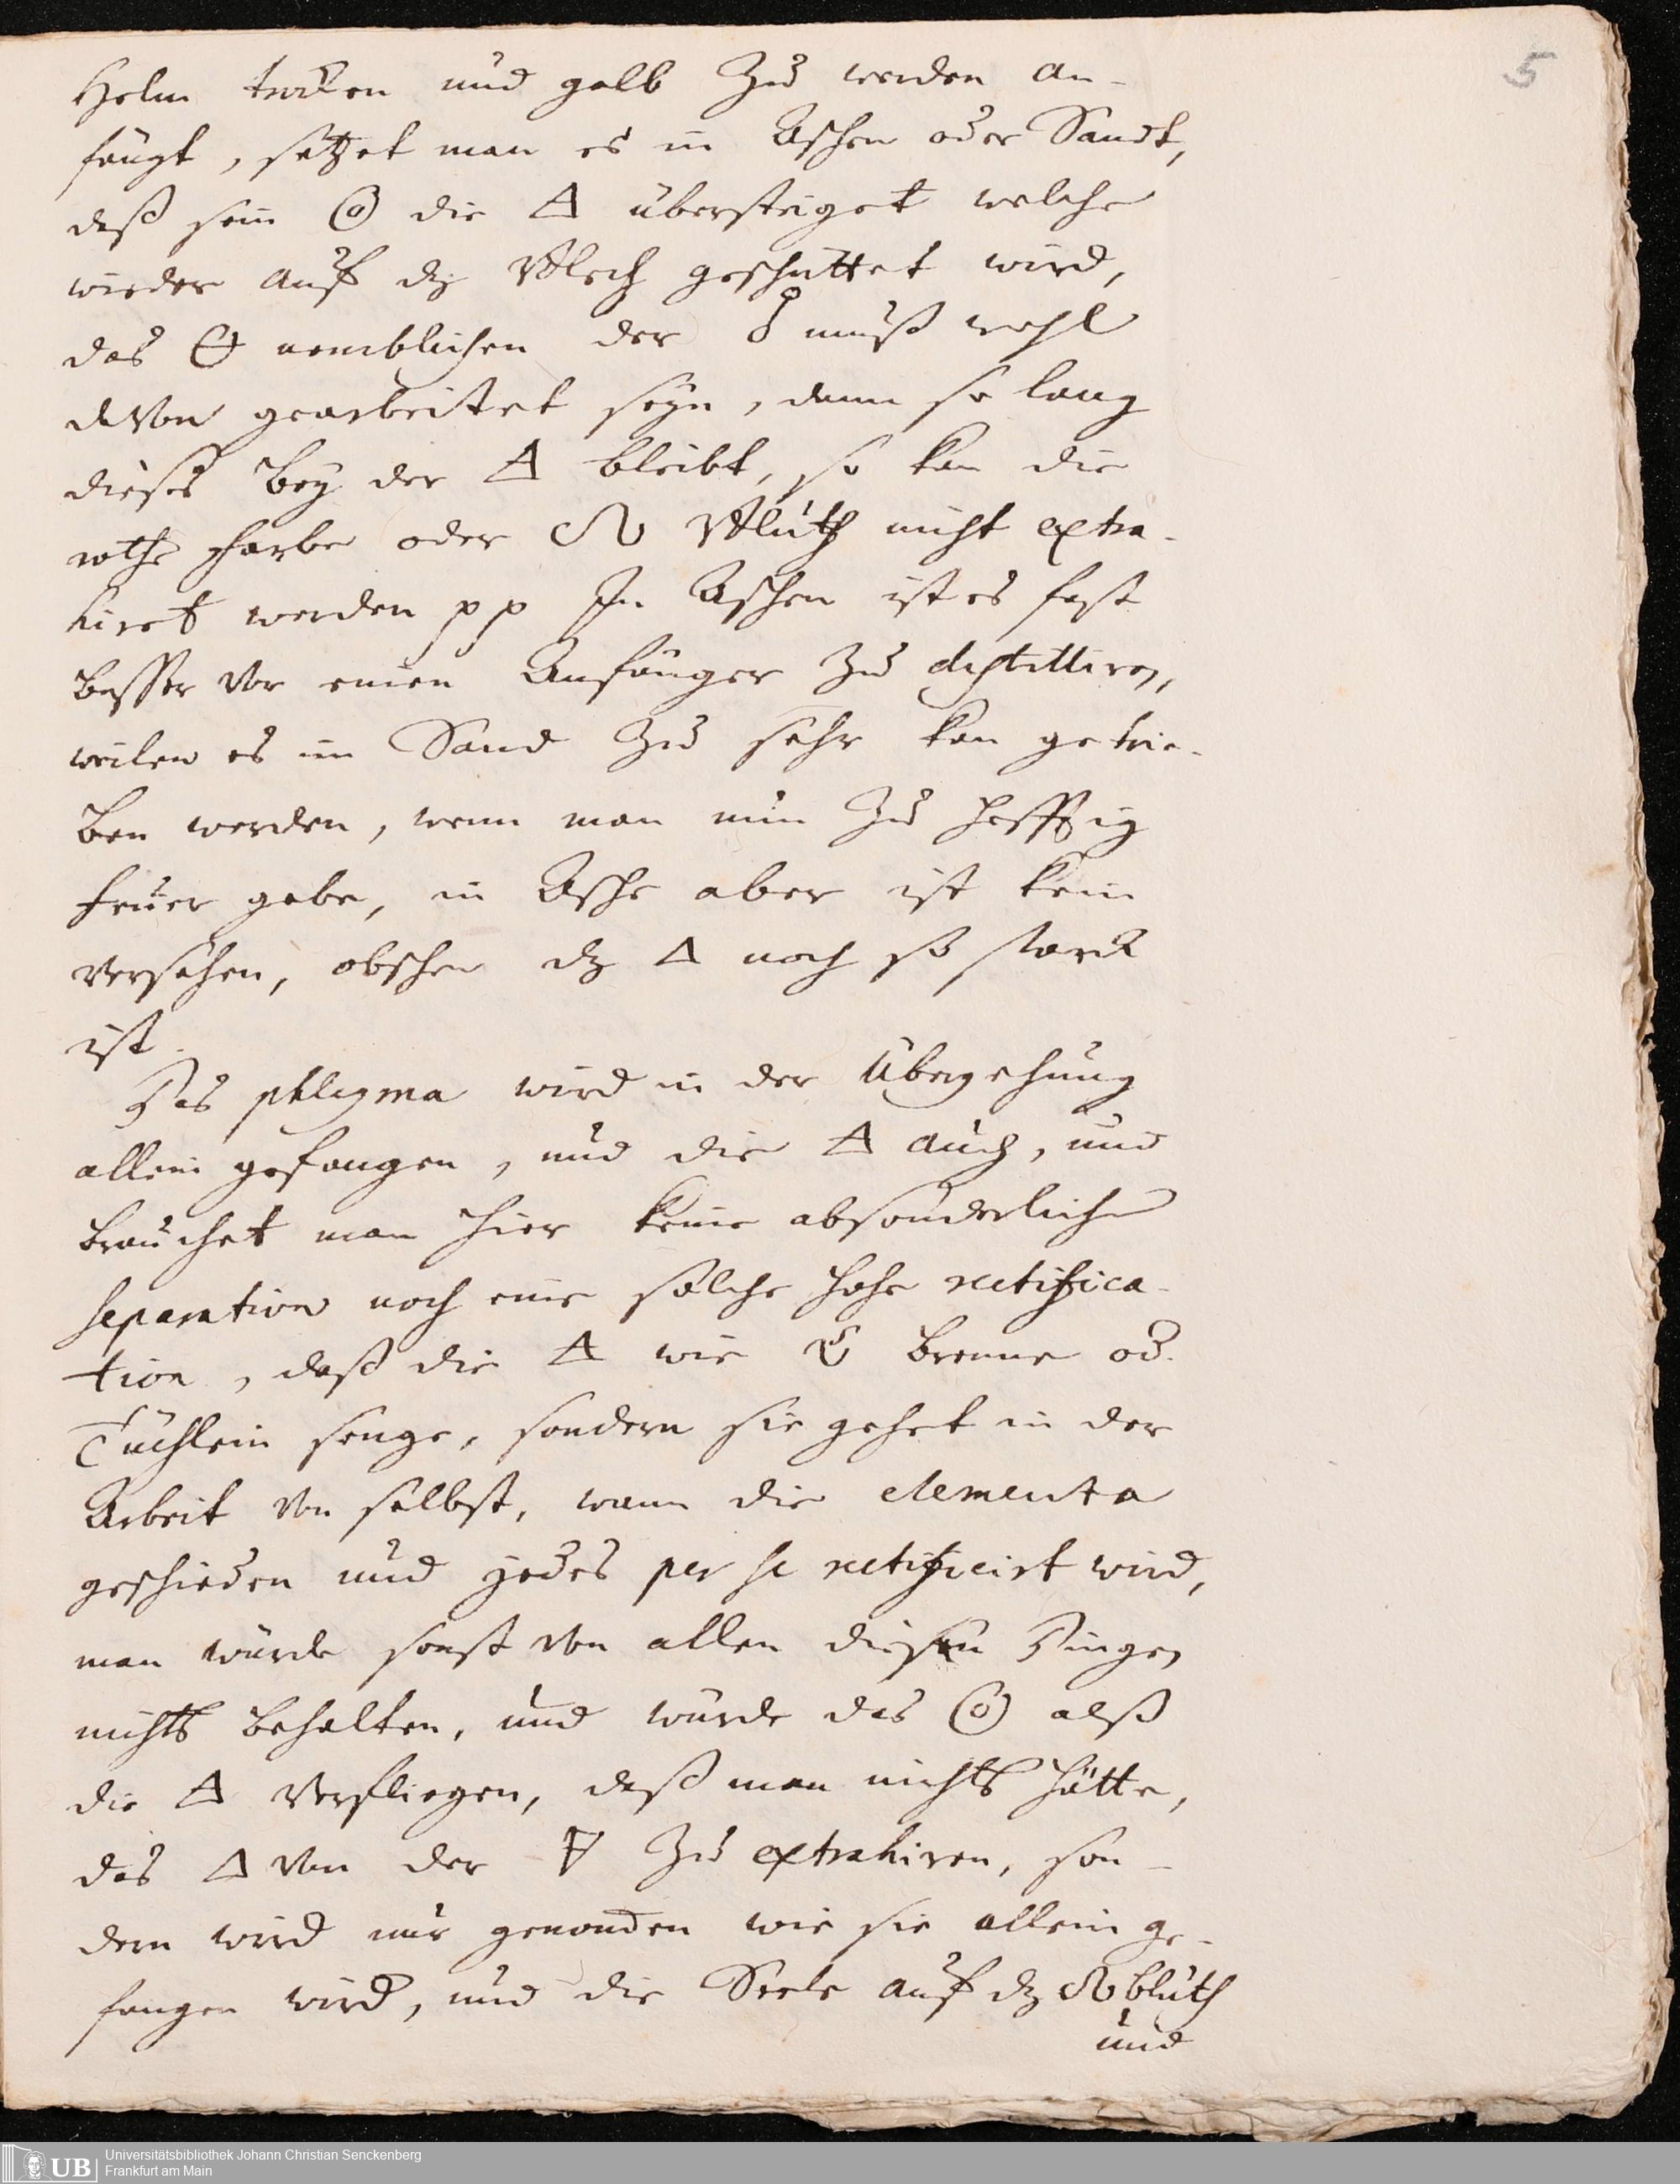 5
Helm trocken und gelb zu werden an-
fängt, setzet man es in Aschen oder Sandt,
daß sein die 🜁 übersteiget welche
wieder auf dz Blech geschüttet wird,
das nemblichen der muß wohl
davon gearbeitet seyn, dann so lang
dieses bey der 🜁 bleibt, so kan die
rothe Farbe oder ♌ Bluth nicht extra-
hiret werden pp In Aschen ist es fast
besser vor einen Anfänger zu destilliren,
weilen es im Sand zu sehr kan getrie-
ben werden, wenn man nun zu hefftig
feuer gebe, in Asche aber ist kein
versehen, obschon dz 🜂 noch so starck
ist.
Das phlegma wird in der übergehung
allein gefangen, und die 🜁 auch, und
brauchet man hier keine absonderliche
separation noch eine solche hohe rectifica-
tion, daß die 🜁 wie brenne od.
Tüchlein senge, sondern sie gehet in der
Arbeit von selbst, wann die elementa
geschieden und jedes per se rectificirt wird,
man würde sonst von allen diesen Dingen
nichts behalten, und würde das alß
die 🜁 verfliegen, daß man nichts hätte,
das 🜂 von der 🜃 zu extrahiren, son-
dern wird nur genomen wie sie allein ge-
fangen wird, und die Seele auf dz ♌bluth
und
UB
Universitätsbibliothek Johann Christian Senckenberg
Frankfurt am Main